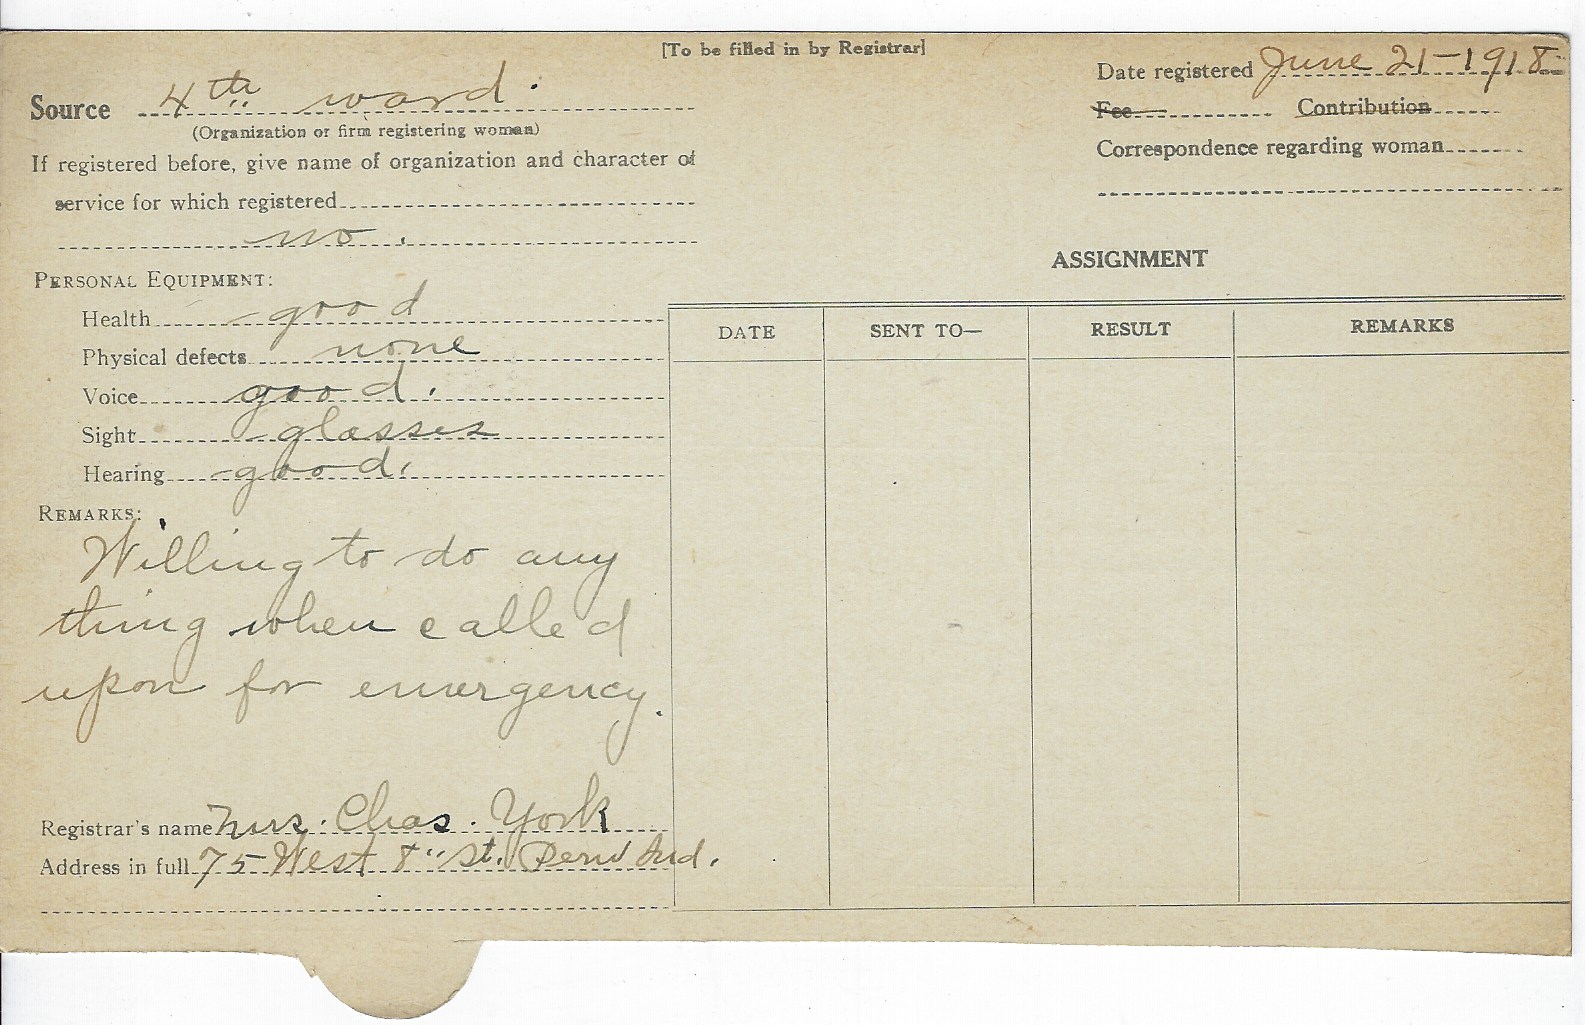 [To be filled in by Registrar]
Source 4th ward.
(Organization or firm registering woman)
If registered before, give name of organization and character of
service for which registered
no.
PERSONAL EQUIPMENT:
Health good
Physical defects none
Voice good.
Sight glasses
Hearing good.
REMARKS:
Willing to do any
thing when called
upon for emergency.
Registrar's name Mrs. Chas. York
Address in full 75 West 8" St. Peru Ind.
Date registered June 21-1918
Fee Contribution
Correspondence regarding woman
ASSIGNMENT
DATE SENT TO— RESULT REMARKS